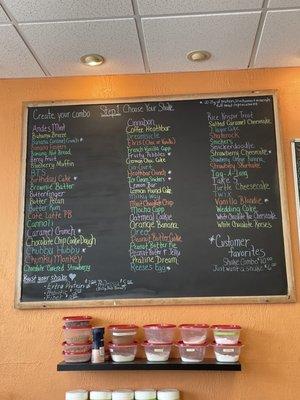 Create your combo
Step 1 Choose Your Shake
Andes Mint
Bahama Breeze
Banana Caramel Crunch
Banana Nut Bread
Berry Fruit
Blueberry Muffin
BTS
Birthday Cake
Brownie Batter
Butterfinger
Butter Pecan
Butter Rum
Cafe Latte PB
Cannoli
Caramel Crunch
Chocolate Chip Cookie Dough
Chubby Hubby
Chunky Monkey
Chocolate Covered Strawberry
Boost your shake
Extra Protein
Cinnabon
Coffee Heathbar
Dreamsicle
French Vanilla Capp
Fruity Pebbles
German Choc Cake
Heathbar Crunch
Ice Cream Sandwich
Lemon Bar
Lemon Pound Cake
Mint Chocolate Chip
Mocha Capp
Oatmeal Cookie
Orange Banana
Oreo
Peanut Butter Cake
Peanut Butter Pie
Peanut Butter & Jelly
Praline Dream
Reeses Egg
Rice Krispie Treat
Salted Caramel Cheesecake
7 Layer Cake
Shamrock
Snickerdoodle
Strawberry Cheesecake
Strawberry Shortcake
Tag-A-Long
Take 5
Turtle Cheesecake
Twix
Vanilla Blondie
Wedding Cake
White Chocolate Pub Cheesecake
White Chocolate Kisses
Customer
favorites
Shake Combo $10.00
Just want a shake